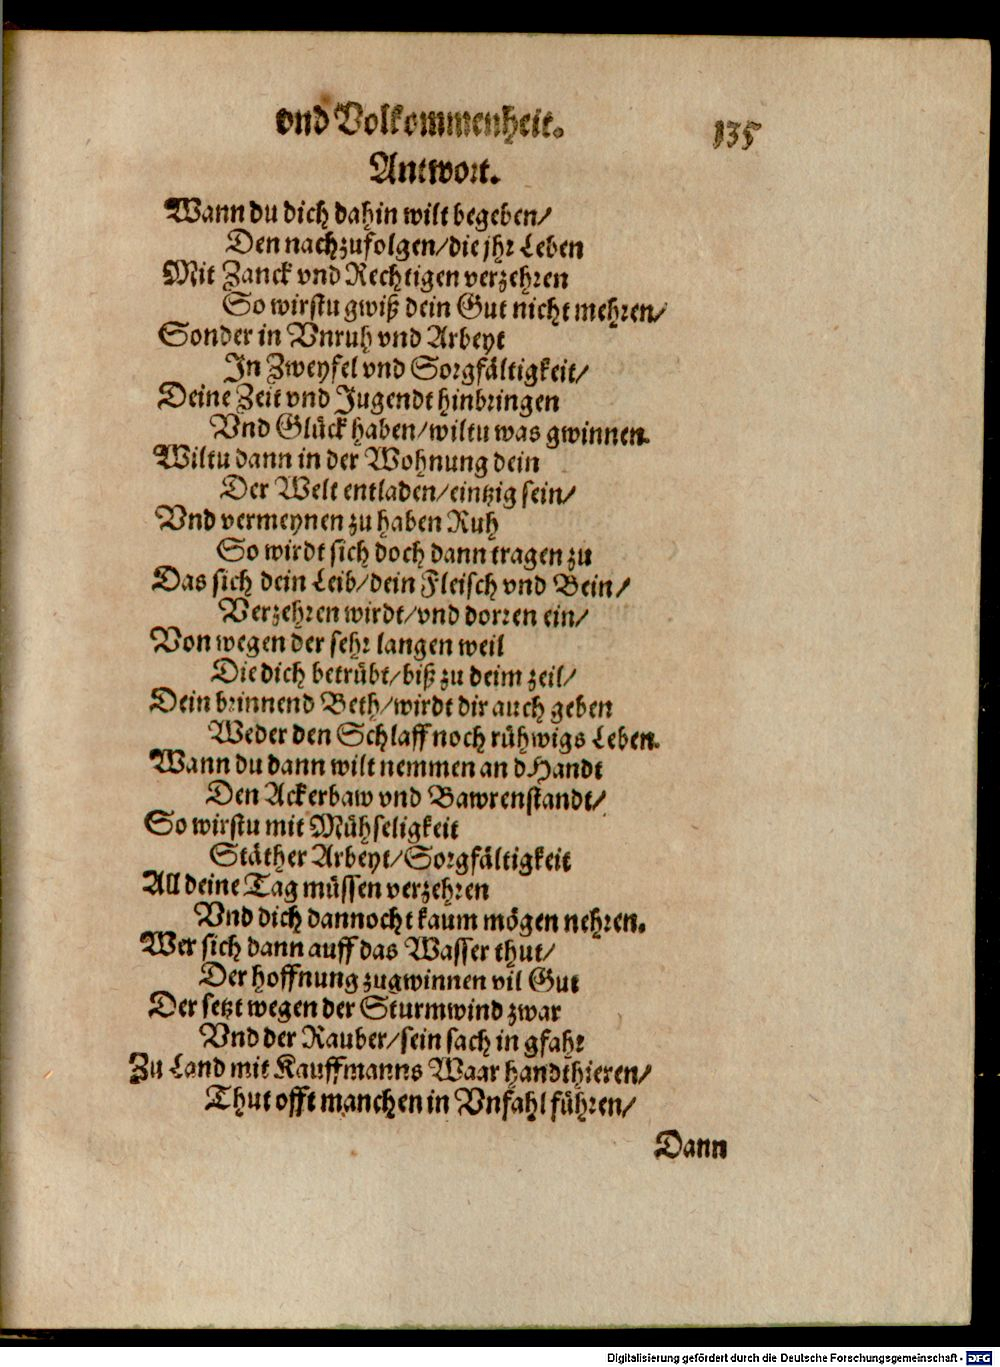 vnd Volkommenheit. 135
Antwort.
Wann du dich dahin wilt begeben/
Den nachzufolgen/die jhr Leben
Mit Zanck vnd Rechtigen verzehren
So wirstu gwiß dein Gut nicht mehren/
Sonder in Vnruh vnd Arbeyt
In Zweyfel vnd Sorgfältigkeit/
Deine Zeit vnd Jugendt hinbringen
Vnd Glück haben/wiltu was gwinnen.
Wiltu dann in der Wohnung dein
Der Welt entladen/eintzig sein/
Vnd vermeynen zu haben Ruh
So wirdt sich doch dann tragen zu
Das sich dein Leib/dein Fleisch vnd Bein/
Verzehren wirdt/vnd dorren ein/
Von wegen der sehr langen weil
Die dich betrübt/biß zu deim zeil/
Dein brinnend Beth/wirdt dir auch geben
Weder den Schlaff noch rühwigs Leben.
Wann du dann wilt nemmen an d Handt
Den Ackerbaw vnd Bawrenstandt/
So wirstu mit Mühseligkeit
Stäther Arbeyt/Sorgfältigkeit
All deine Tag müssen verzehren
Vnd dich dannocht kaum mögen nehren.
Wer sich dann auff das Wasser thut/
Der hoffnung zugwinnen vil Gut
Der setzt wegen der Sturmwind zwar
Vnd der Rauber/sein sach in gfahr
Zu Land mit Kauffmanns Waar handthieren/
Thut offt manchen in Vnfahl führen/
Dann
Digitalisierung gefördert durch die Deutsche Forschungsgemeinschaft - DFG